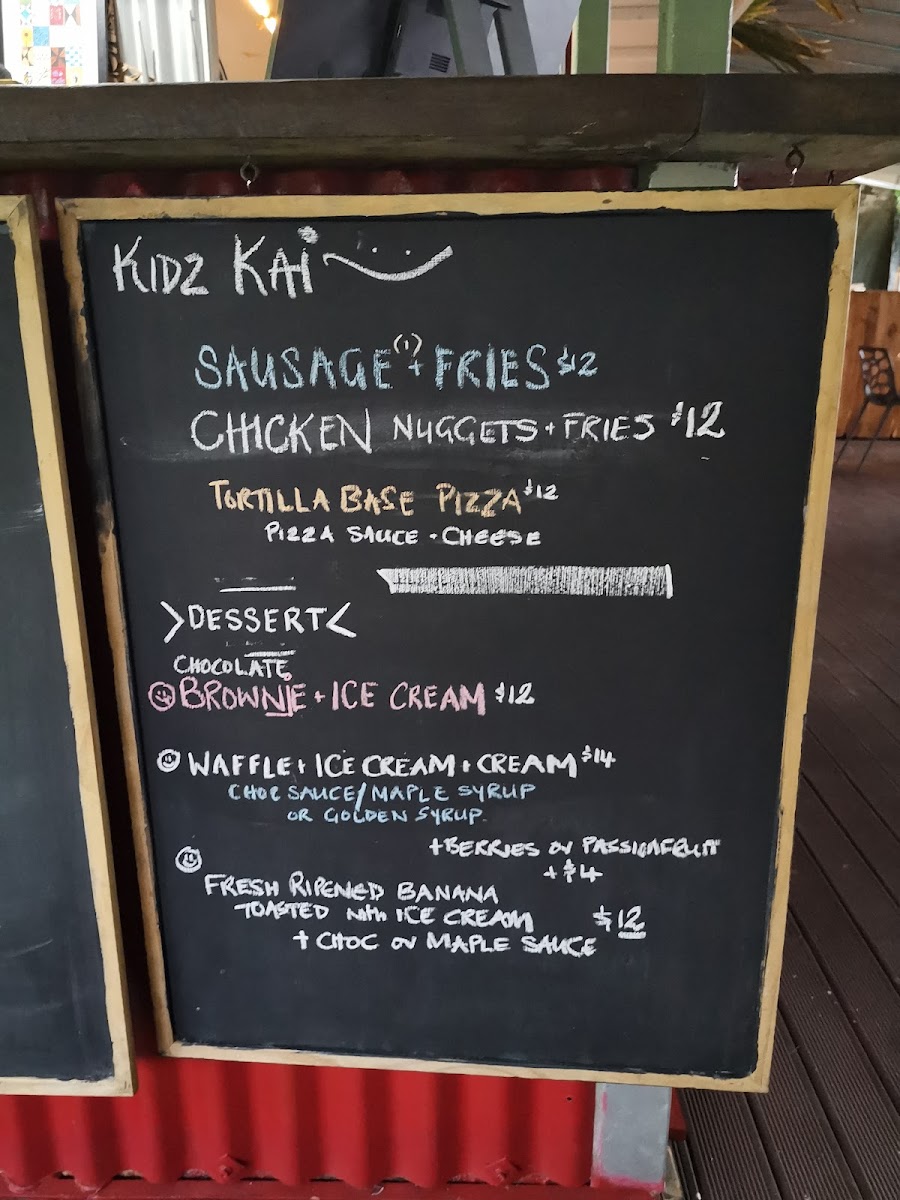 KIDZ KAI
SAUSAGE (1) + FRIES $12
CHICKEN NUGGETS + FRIES $12
TORTILLA BASE PIZZA $12
PIZZA SAUCE - CHEESE
>DESSERT<
CHOCOLATE
BROWNIE + ICE CREAM $12
WAFFLE + ICE CREAM + CREAM $14
CHOC SAUCE/MAPLE SYRUP
OR GOLDEN SYRUP.
+BERRIES OR PASSIONFRUIT
+$4
FRESH RIPENED BANANA
TOASTED with ICE CREAM $12
+ CHOC OR MAPLE SAUCE